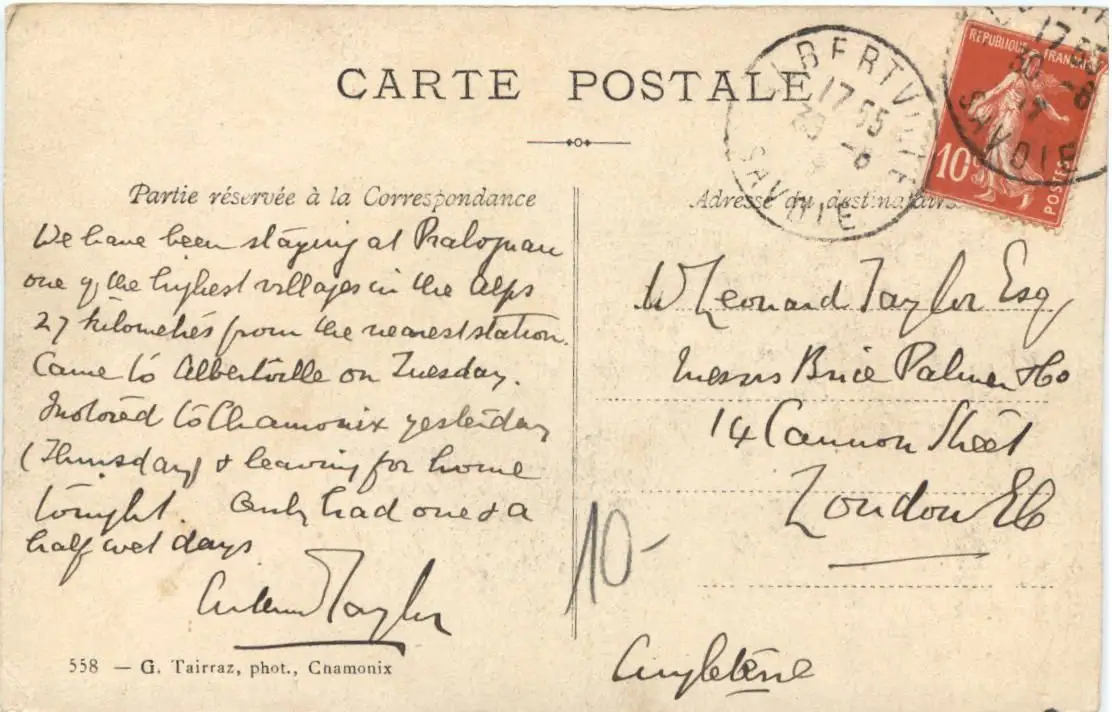 CARTE POSTALE
ALBERTVILLE
17 55
30 -8
SAVOIE
REPUBLIQUE FRANÇAISE
10c
POSTES
17 55
30 -8
SAVOIE
Partie réservée à la Correspondance
We have been staying at Pralognan
one of the highest villages in the Alps
27 kilometres from the nearest station.
Came to Albertville on Tuesday.
Motored to Chamonix yesterday
(Thursday) & leaving for home
tonight. Only had one & a
half wet days
Taylor
558 — G. Tairraz, phot., Chamonix
Adresse du destinataire
W Leonard Taylor Esq
Messrs Brice Palmer & Co
14 Cannon Street
London EC
10-
Angleterre